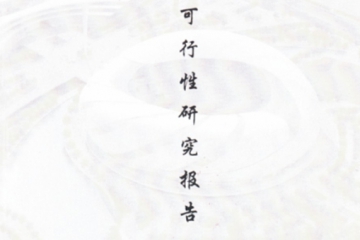 可行性研究报告